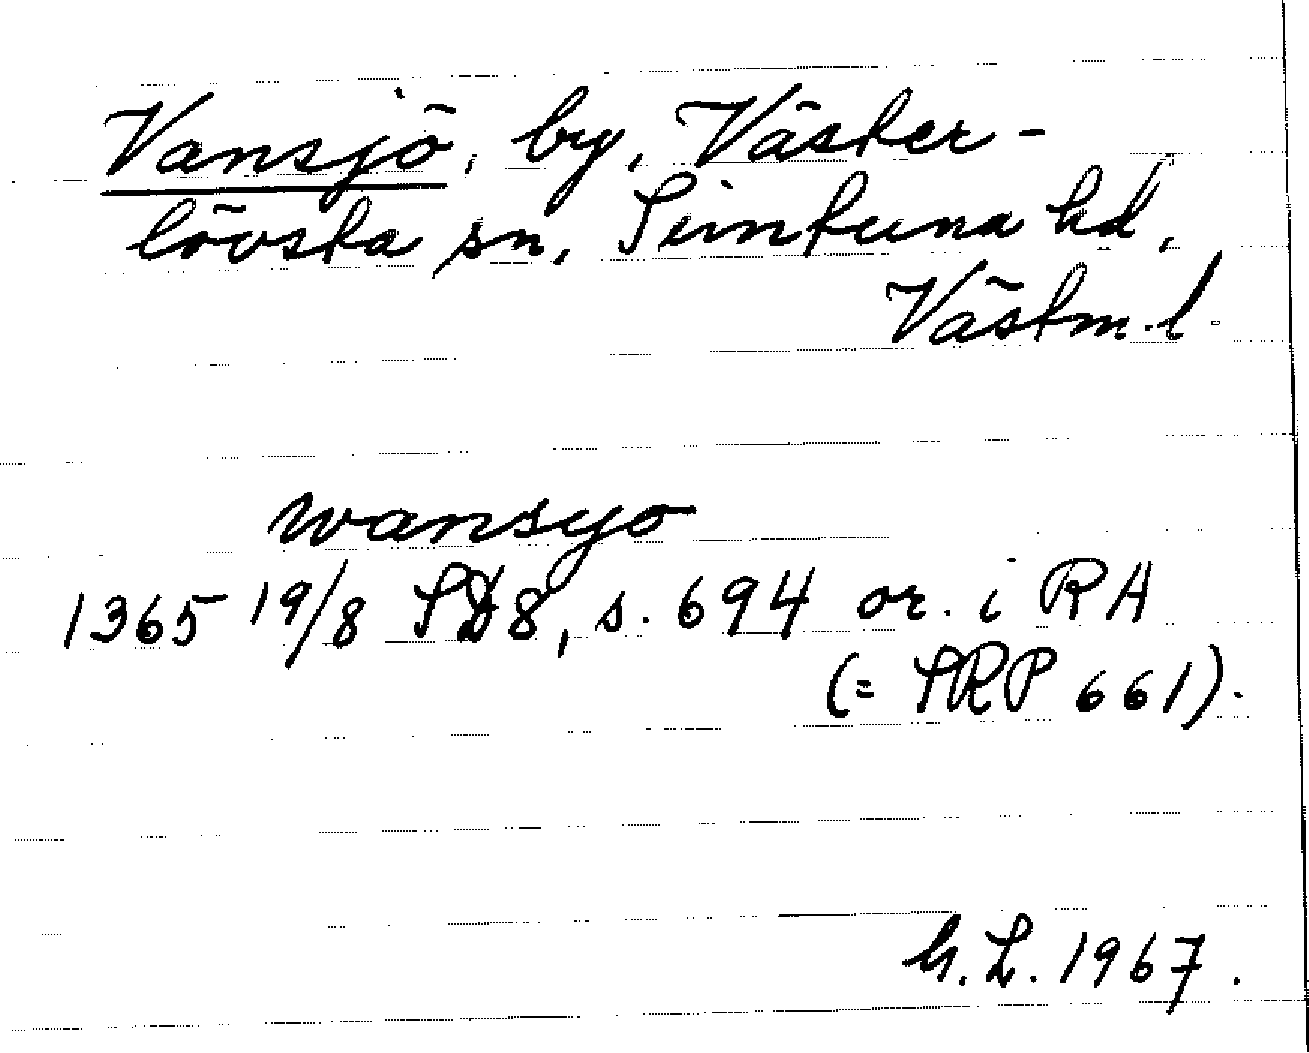 Vansjö, by, Väster-
lövsta sn, Simtuna hd,
Västm. l.
wansyo
1365 19/8 SD8, s. 694 or. i RA
(= SRP 661).
G. L. 1967.